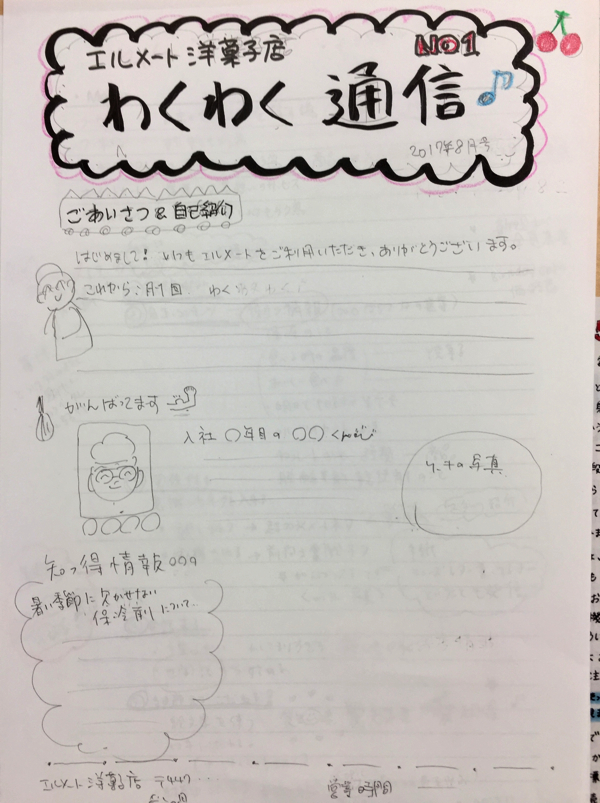 エルメート洋菓子店
NO1
わくわく通信
2017年8月号
ごあいさつ & 自己紹介
はじめまして! いつもエルメートをご利用いただき、ありがとうございます。
これから月1回 わくわく
がんばってます
入社〇年目の〇〇くん
ケーキの写真
〇〇〇〇
知っ得情報
暑い季節に欠かせない
保冷剤について...
エルメート洋菓子店 〒447...
営業時間